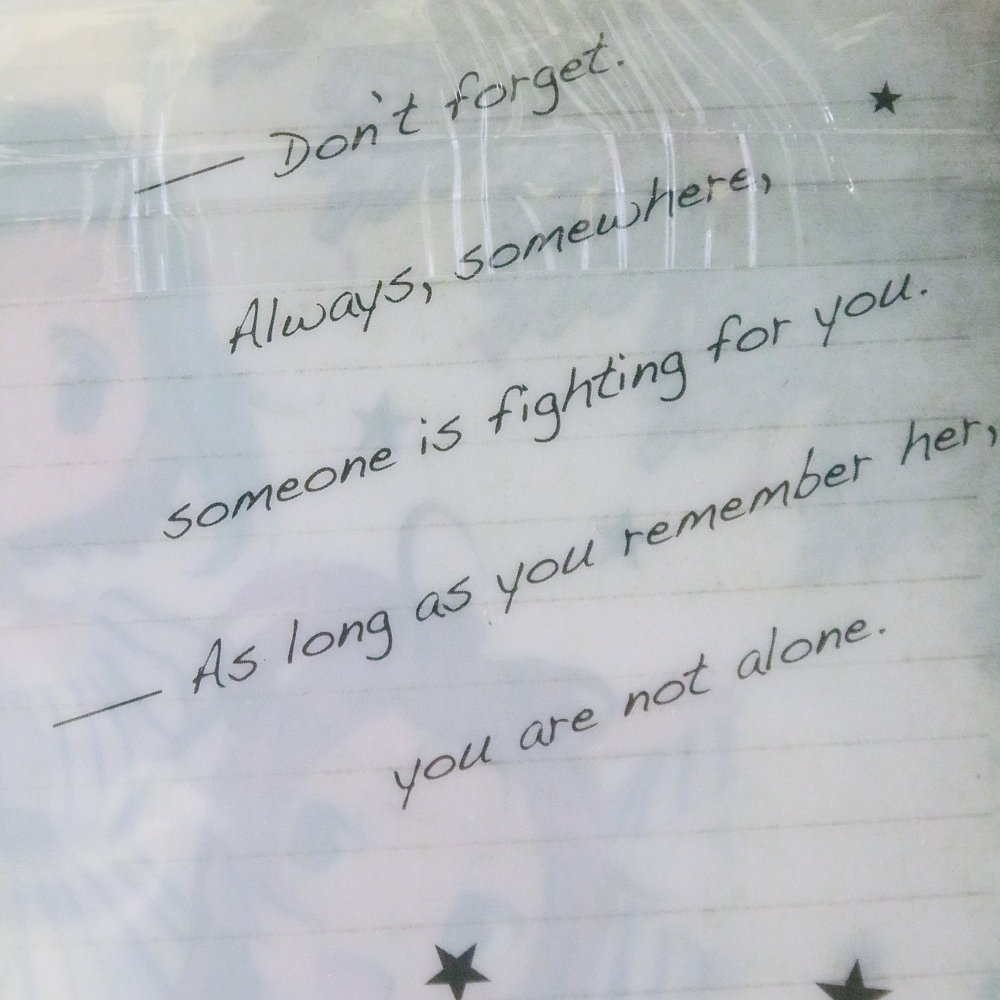 — Don't forget.
Always, somewhere,
someone is fighting for you.
— As long as you remember her,
you are not alone.